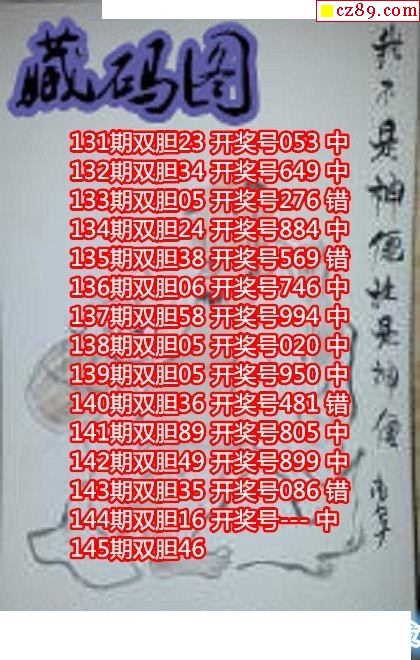 cz89.com
藏码图
131期双胆23 开奖号053 中
132期双胆34 开奖号649 中
133期双胆05 开奖号276 错
134期双胆24 开奖号884 中
135期双胆38 开奖号569 错
136期双胆06 开奖号746 中
137期双胆58 开奖号994 中
138期双胆05 开奖号020 中
139期双胆05 开奖号950 中
140期双胆36 开奖号481 错
141期双胆89 开奖号805 中
142期双胆49 开奖号899 中
143期双胆35 开奖号086 错
144期双胆16 开奖号--- 中
145期双胆46
我不是神
是神